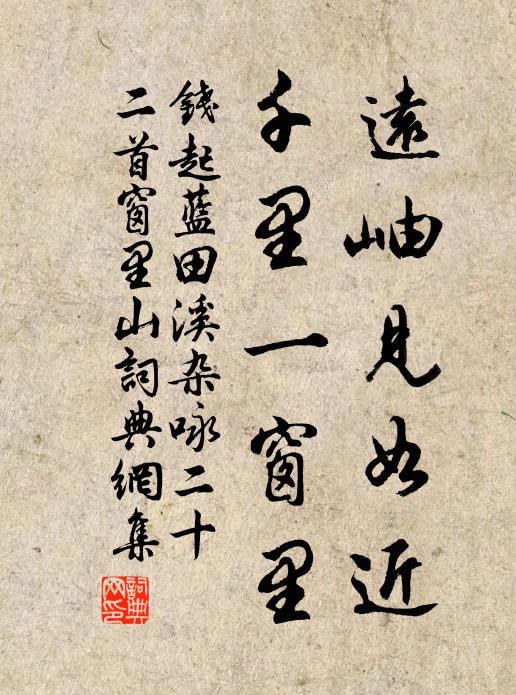 遠岫見如近
千里一窗里
錢起藍田溪杂咏二十
二首窗里山詞典網集
詞典网印